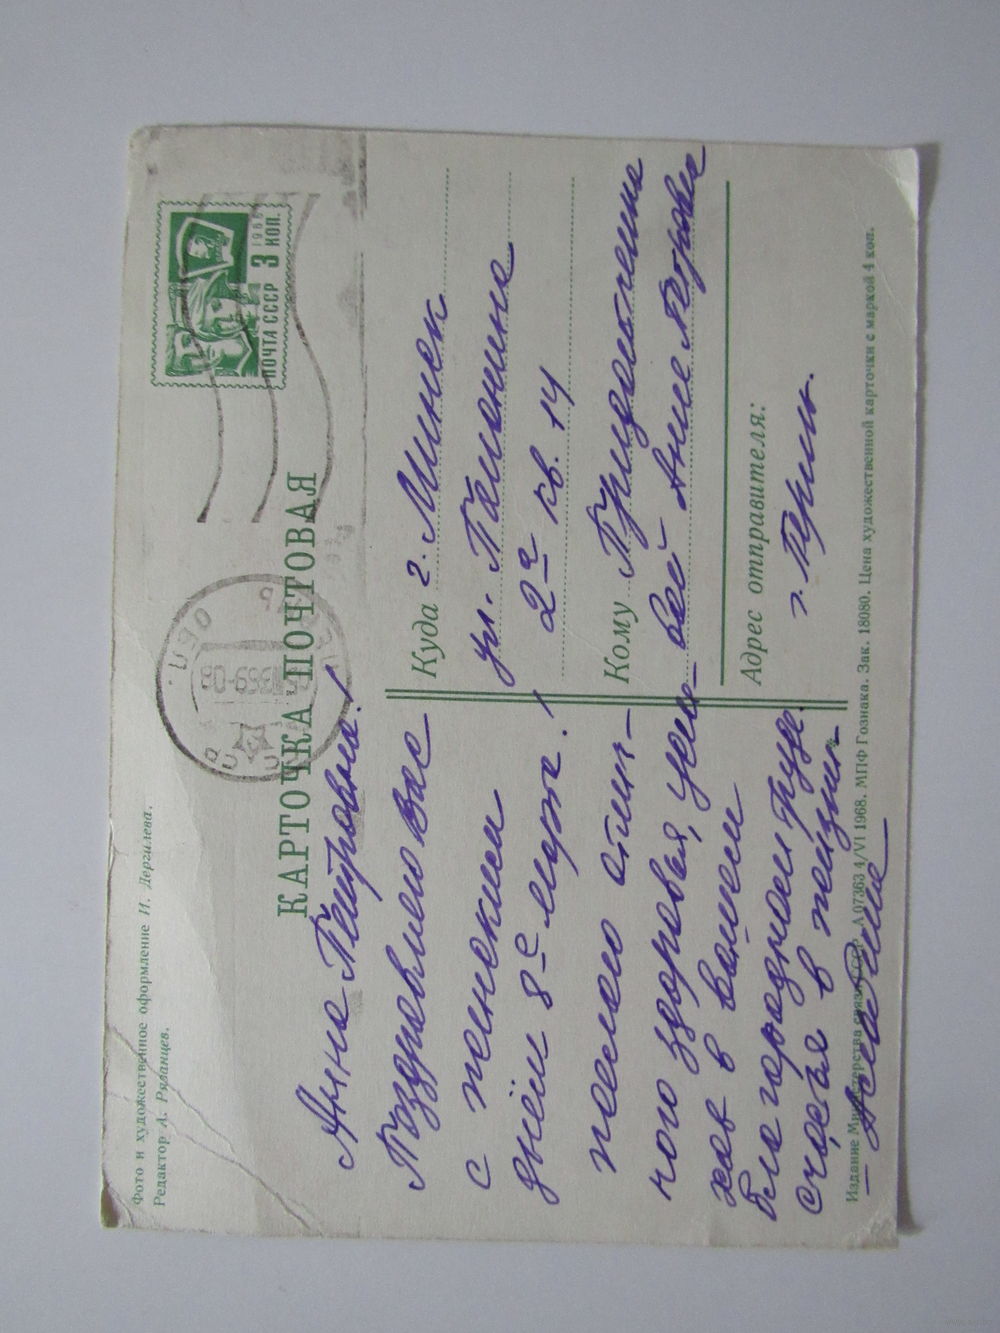 Фото и художественное оформление И. Дергилева.
Редактор А. Рязанцев.
КАРТОЧКА ПОЧТОВАЯ
ПОЧТА СССР 3 КОП.
1966
Анна Петровна!
Поздравляю Вас
с женским
днём 8е марта!
желаю отлич-
ного здоровья, успе-
хов в вашем
благородном труде.
счастья в жизни.
Куда г. Минск
ул. Калинина
2а кв. 14
Кому
вой Анне Петровне
Адрес отправителя:
г. Пермь.
Издание Министерства связи СССР. А 07363 4/VI 1968. МПФ Гознака. Зак. 18080. Цена художественной карточки с маркой 4 коп.